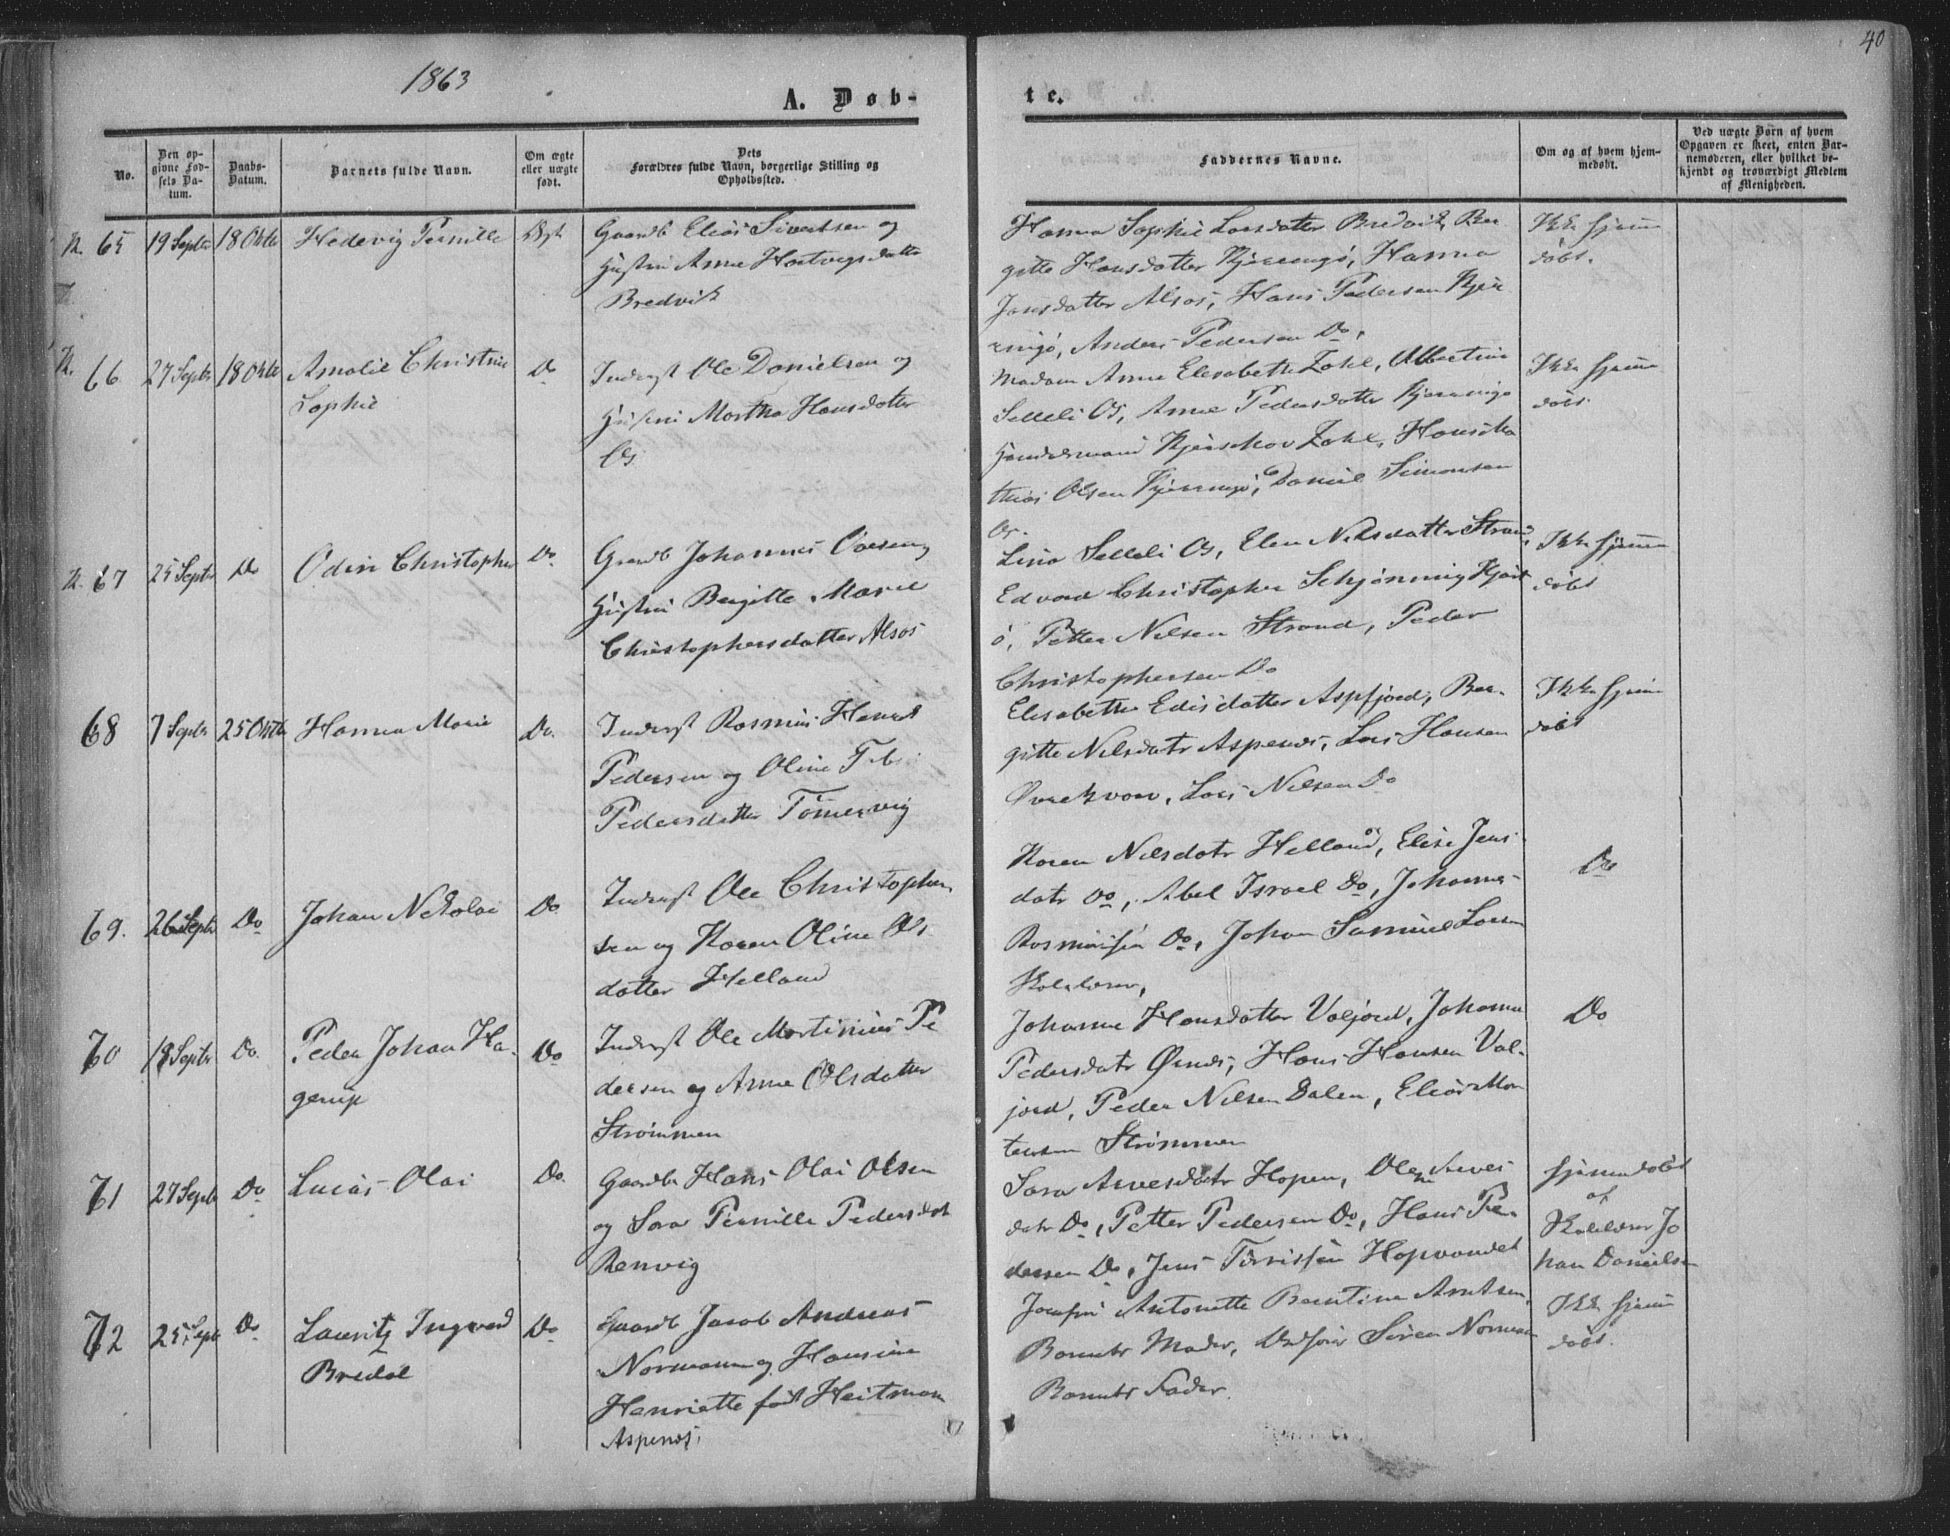 40
1863
A. Døb-
te.
No.
Den opgivne Fødsels Datum.
Daabs-Datum.
Barnets fulde Navn.
Om ægte eller uægte født.
Dets Forældres fulde Navn, borgerlige Stilling og Opholdssted.
Faddernes Navne.
Om og af hvem hjemmedøbt.
Ved uægte Børn af hvem Opgaven er skeet, enten Barnemoderen, eller hvilket bekjendt og troværdigt Medlem af Menigheden.
K. 65 19 Septbr 18 Oktbr Hedevig Pernille Ægt
Gaardb Elias Sivertsen og
Hustru Anne Hartvigsdatter
Bredvik
Hanna Sophie Larsdatter Bredvik, Ber
gitte Hansdatter Kjerringø, Hanna
Jonsdatter Alsos, Hans Pedersen Kjer
ringø, Anders Pedersen Do,
Ikke hjem
døbt.
K. 66 27 Septbr 18 Oktbr Amalie Christine
Sophie
Do
Inderst Ole Danielsen og
Hustru Martha Hansdatter
Os
Madam Anne Elisabeth Zahl, Albertine
Selleli Os, Anne Pedersdatter Kjerringø
Handelsmand Kjerschov Zahl, Hans Ma
thias Olsen Kjerringø, Daniel Simonsen
Os.
Ikke hjem
døbt.
K. 67 25 Septbr Do Odin Christopher Do
Gaardb Johannes Olesen og
Hustru Bergitte Marie
Christophersdatter Alsos
Lina Selleli Os, Elen Nilsdatter Strand,
Edvard Christopher Schjønning Kjært
ø, Petter Nilsen Strand, Peder
Christophersen Do
Ikke hjem
døbt
68 7 Septbr 25 Oktbr Hanna Marie Do.
Inderst Rasmus Hanse
Pedersen og Oline
Pedersdatter Tømmervig
Elisabeth Edisdatter Aspfjord, Ber-
gitte Nilsdatr Aspenes, Lars Hansen
Øvrekvarv, Lars Nilsen Do
Ikke hjem
døbt
69. 26 Septbr Do Johan Nikolai Do
Inderst Ole Christopher
sen og Karen Oline Ols
datter Helland
Karen Nilsdatr Helland, Elise Jens
datr Do, Abel Israel Do, Johannes
Rasmussen Do, Johan Samuel Larsen
Skolelærer,
Do
70 18 Septbr Do. Peder Johan Ha-
gerup
Do
Inderst Ole Martinus Pe
dersen og Anne Olsdatter
Strømmen
Johanne Hansdatter Valjord, Johanna
Pedersdatr Ørnes, Hans Hansen Val-
jord, Peder Nilsen Dalen, Elias Mor
tensen Strømmen
Do
71 27 Septbr Do Lucas Olai Do.
Gaardb Hans Olai Olsen
og Sara Pernille Pedersdat
Renvig
Sara Arvesdatr Hopen, Olene Arves
datr Do, Petter Pedersen Do, Hans Pe
dersen Do, Jens Torrissen Hopvandet
Hjemmedøbt
af
Skolelærer Jo
han Danielsen
72 25 Septb Do Lauritz Ingvard
Bredal
Do
Gaardb Jacob Andreas
Normann og Hansine
Henriette født Heitmann
Aspenes.
Josefine Antonette Berntine Arntsen,
Barnets Moder, Søren Normann
Barnets Fader.
Ikke hjem
døbt.